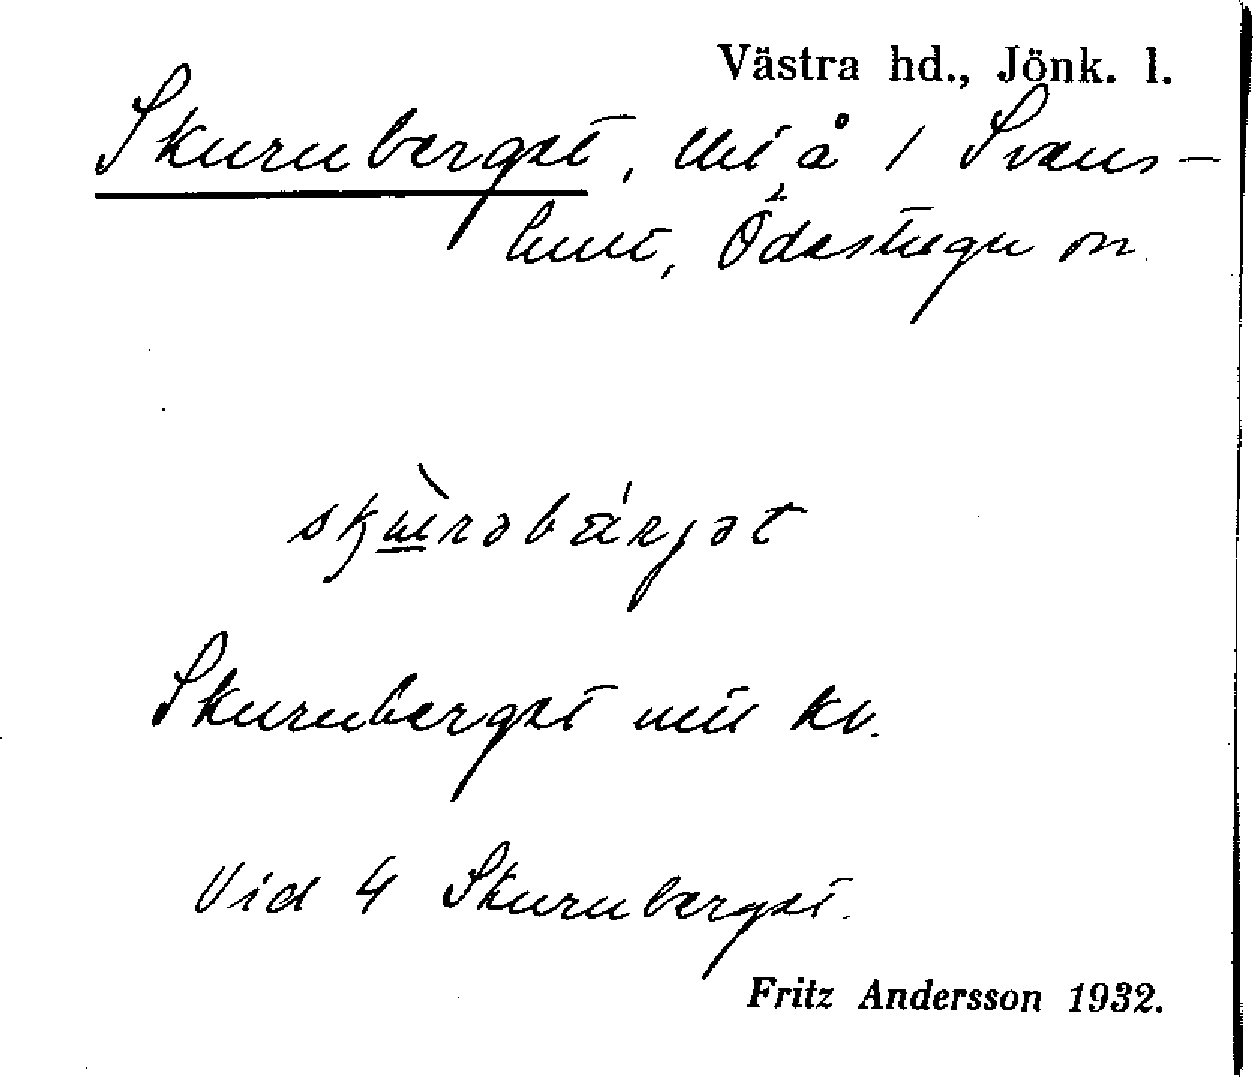 Västra hd., Jönk. l.
Skuruberget, utl å 1 Svans-
hult, Ödestugu sn
skurəbärjət
Skuruberget utl kv.
Vid 4 Skuruberget.
Fritz Andersson 1932.